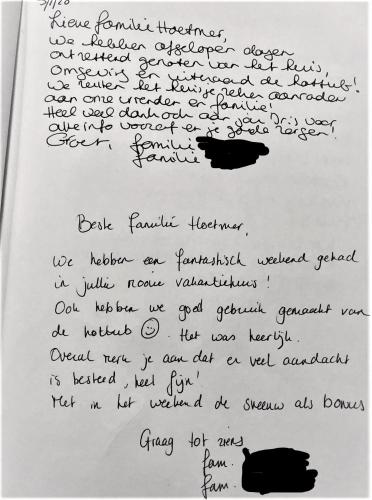 5/1/20
Lieve familie Hoetmer,
We hebben afgelopen dagen
ontzettend genoten van het huis,
omgeving en uiteraard de hottub!
We zullen het huisje zeker aanraden
aan onze vrienden en familie!
Heel veel dank ook aan jou Dris voor
alle info vooraf en je goede zorgen!
Groet, familie
familie
Beste familie Hoetmer,
We hebben een fantastisch weekend gehad
in jullie mooie vakantiehuis!
Ook hebben we goed gebruik gemaakt van
de hottub ☺. Het was heerlijk.
Overal merk je aan dat er veel aandacht
is besteed, heel fijn!
Met in het weekend de sneeuw als bonus
Graag tot ziens
fam.
fam.